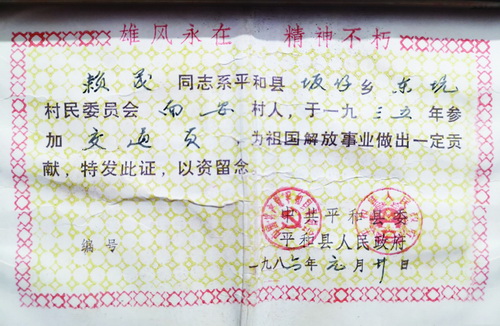 雄风永在 精神不朽
赖茂同志系平和县坂仔乡东坑
村民委员会 村人，于一九三五年参
加交通员，为祖国解放事业做出一定贡
献，特发此证，以资留念。
中共平和县委
编号
平和县人民政府
一九八六年元月廿日